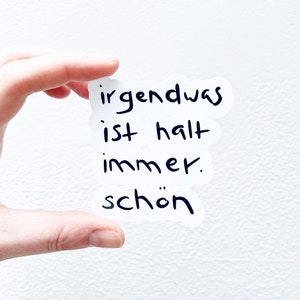 irgendwas
ist halt
immer.
schön